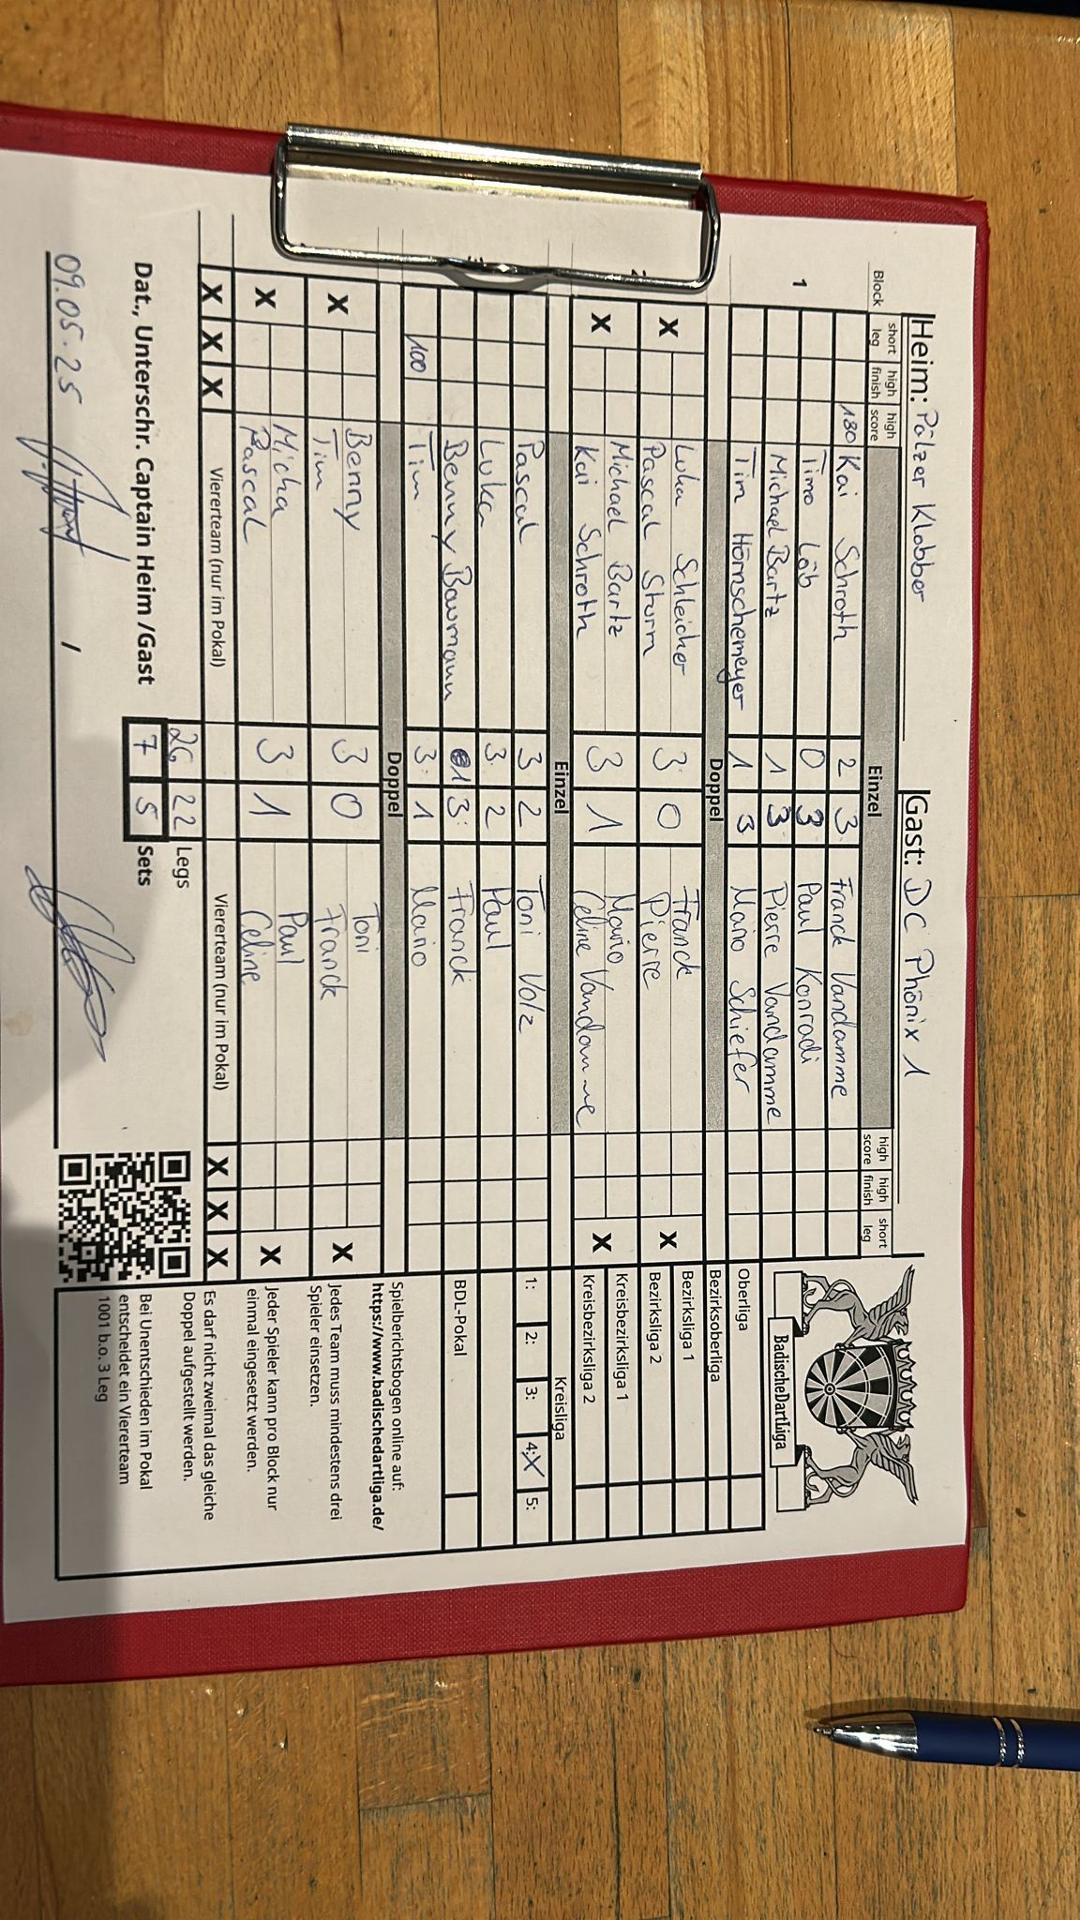 Heim: Pälzer Klobber Gast: DC Phönix 1
Block short leg high finish high score Einzel high score high finish short leg
180 Kai Schroth 2 3 Franck Vandamme
Timo Löb 0 3 Paul Konradi
1 Michael Bartz 1 3 Pierre Vandamme
Tim Hörnschemeyer 1 3 Mario Schiefer
Doppel
Luka Schleicher Franck
X Pascal Sturm 3 0 Pierre X
Michael Bartz Mario
X Kai Schroth 3 1 Celine Vandamme X
Einzel
Pascal 3 2 Toni Volz
Luka 3 2 Paul
Benny Baumann 1 3 Franck
100 Tim 3 1 Mario
Doppel
Benny Toni
X Tim 3 0 Franck X
Micha Paul
X Pascal 3 1 Celine X
X X X Viererteam (nur im Pokal) Viererteam (nur im Pokal) X X X
26 22 Legs
Dat., Unterschr. Captain Heim /Gast 7 5 Sets
09.05.25 /
BadischeDartLiga
Oberliga
Bezirksoberliga
Bezirksliga 1
Bezirksliga 2
Kreisbezirksliga 1
Kreisbezirksliga 2
Kreisliga
1: 2: 3: 4: X 5:
BDL-Pokal
Spielberichtsbogen online auf:
https://www.badischedartliga.de/
Jedes Team muss mindestens drei
Spieler einsetzen.
Jeder Spieler kann pro Block nur
einmal eingesetzt werden.
Es darf nicht zweimal das gleiche
Doppel aufgestellt werden.
Bei Unentschieden im Pokal
entscheidet ein Viererteam
1001 b.o. 3 Leg